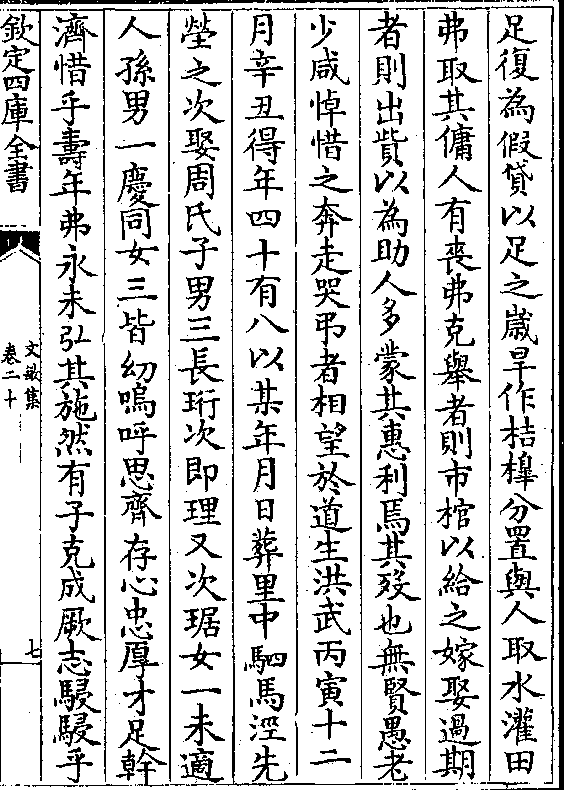 足復為假貸以足之歲旱作桔橰分置與人取水灌田
弗取其傭人有喪弗克舉者則市棺以給之嫁娶過期
者則出貲以為助人多蒙其惠利焉其歿也無賢愚老
少咸悼惜之奔走哭弔者相望於道生洪武丙寅十二
月辛丑得年四十有八以某年月日葬里中駟馬涇先
塋之次娶周氏子男三長珩次即理又次琚女一未適
人孫男一慶同女三皆幼嗚呼思齊存心忠厚才足幹
濟惜乎壽年弗永未弘其施然有子克成厥志駸駸乎
欽定四庫全書
文敏集
卷二十
七